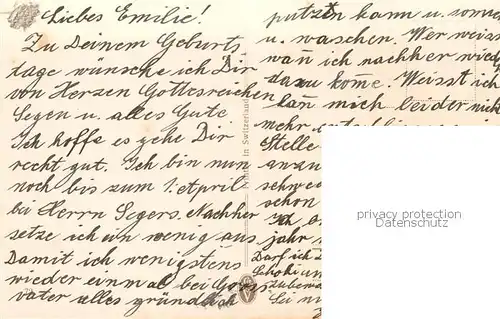 Liebes Emilie!
Zu Deinem Geburts-
tage wünsche ich Dir
von Herzen Gottesreichen
Segen u. alles Gute
Ich hoffe es gehe Dir
recht gut. Ich bin nun
noch bis zum 1. April
bei Herrn Segers. Nachher
setze ich ein wenig aus
Damit ich wenigstens
wieder einmal bei Gross
vater alles gründlich
putzen kann u. somm
u. waschen. Wer weiss
wan̄ ich nachher wied
dazu kom̄e. Weisst ich
kan̄ mich leider nich
mehr
Stelle
anzu
schwe
schon
jahr
Darf ich D
Schoki
Sei
Made in Switzerland
privacy protection
Datenschutz